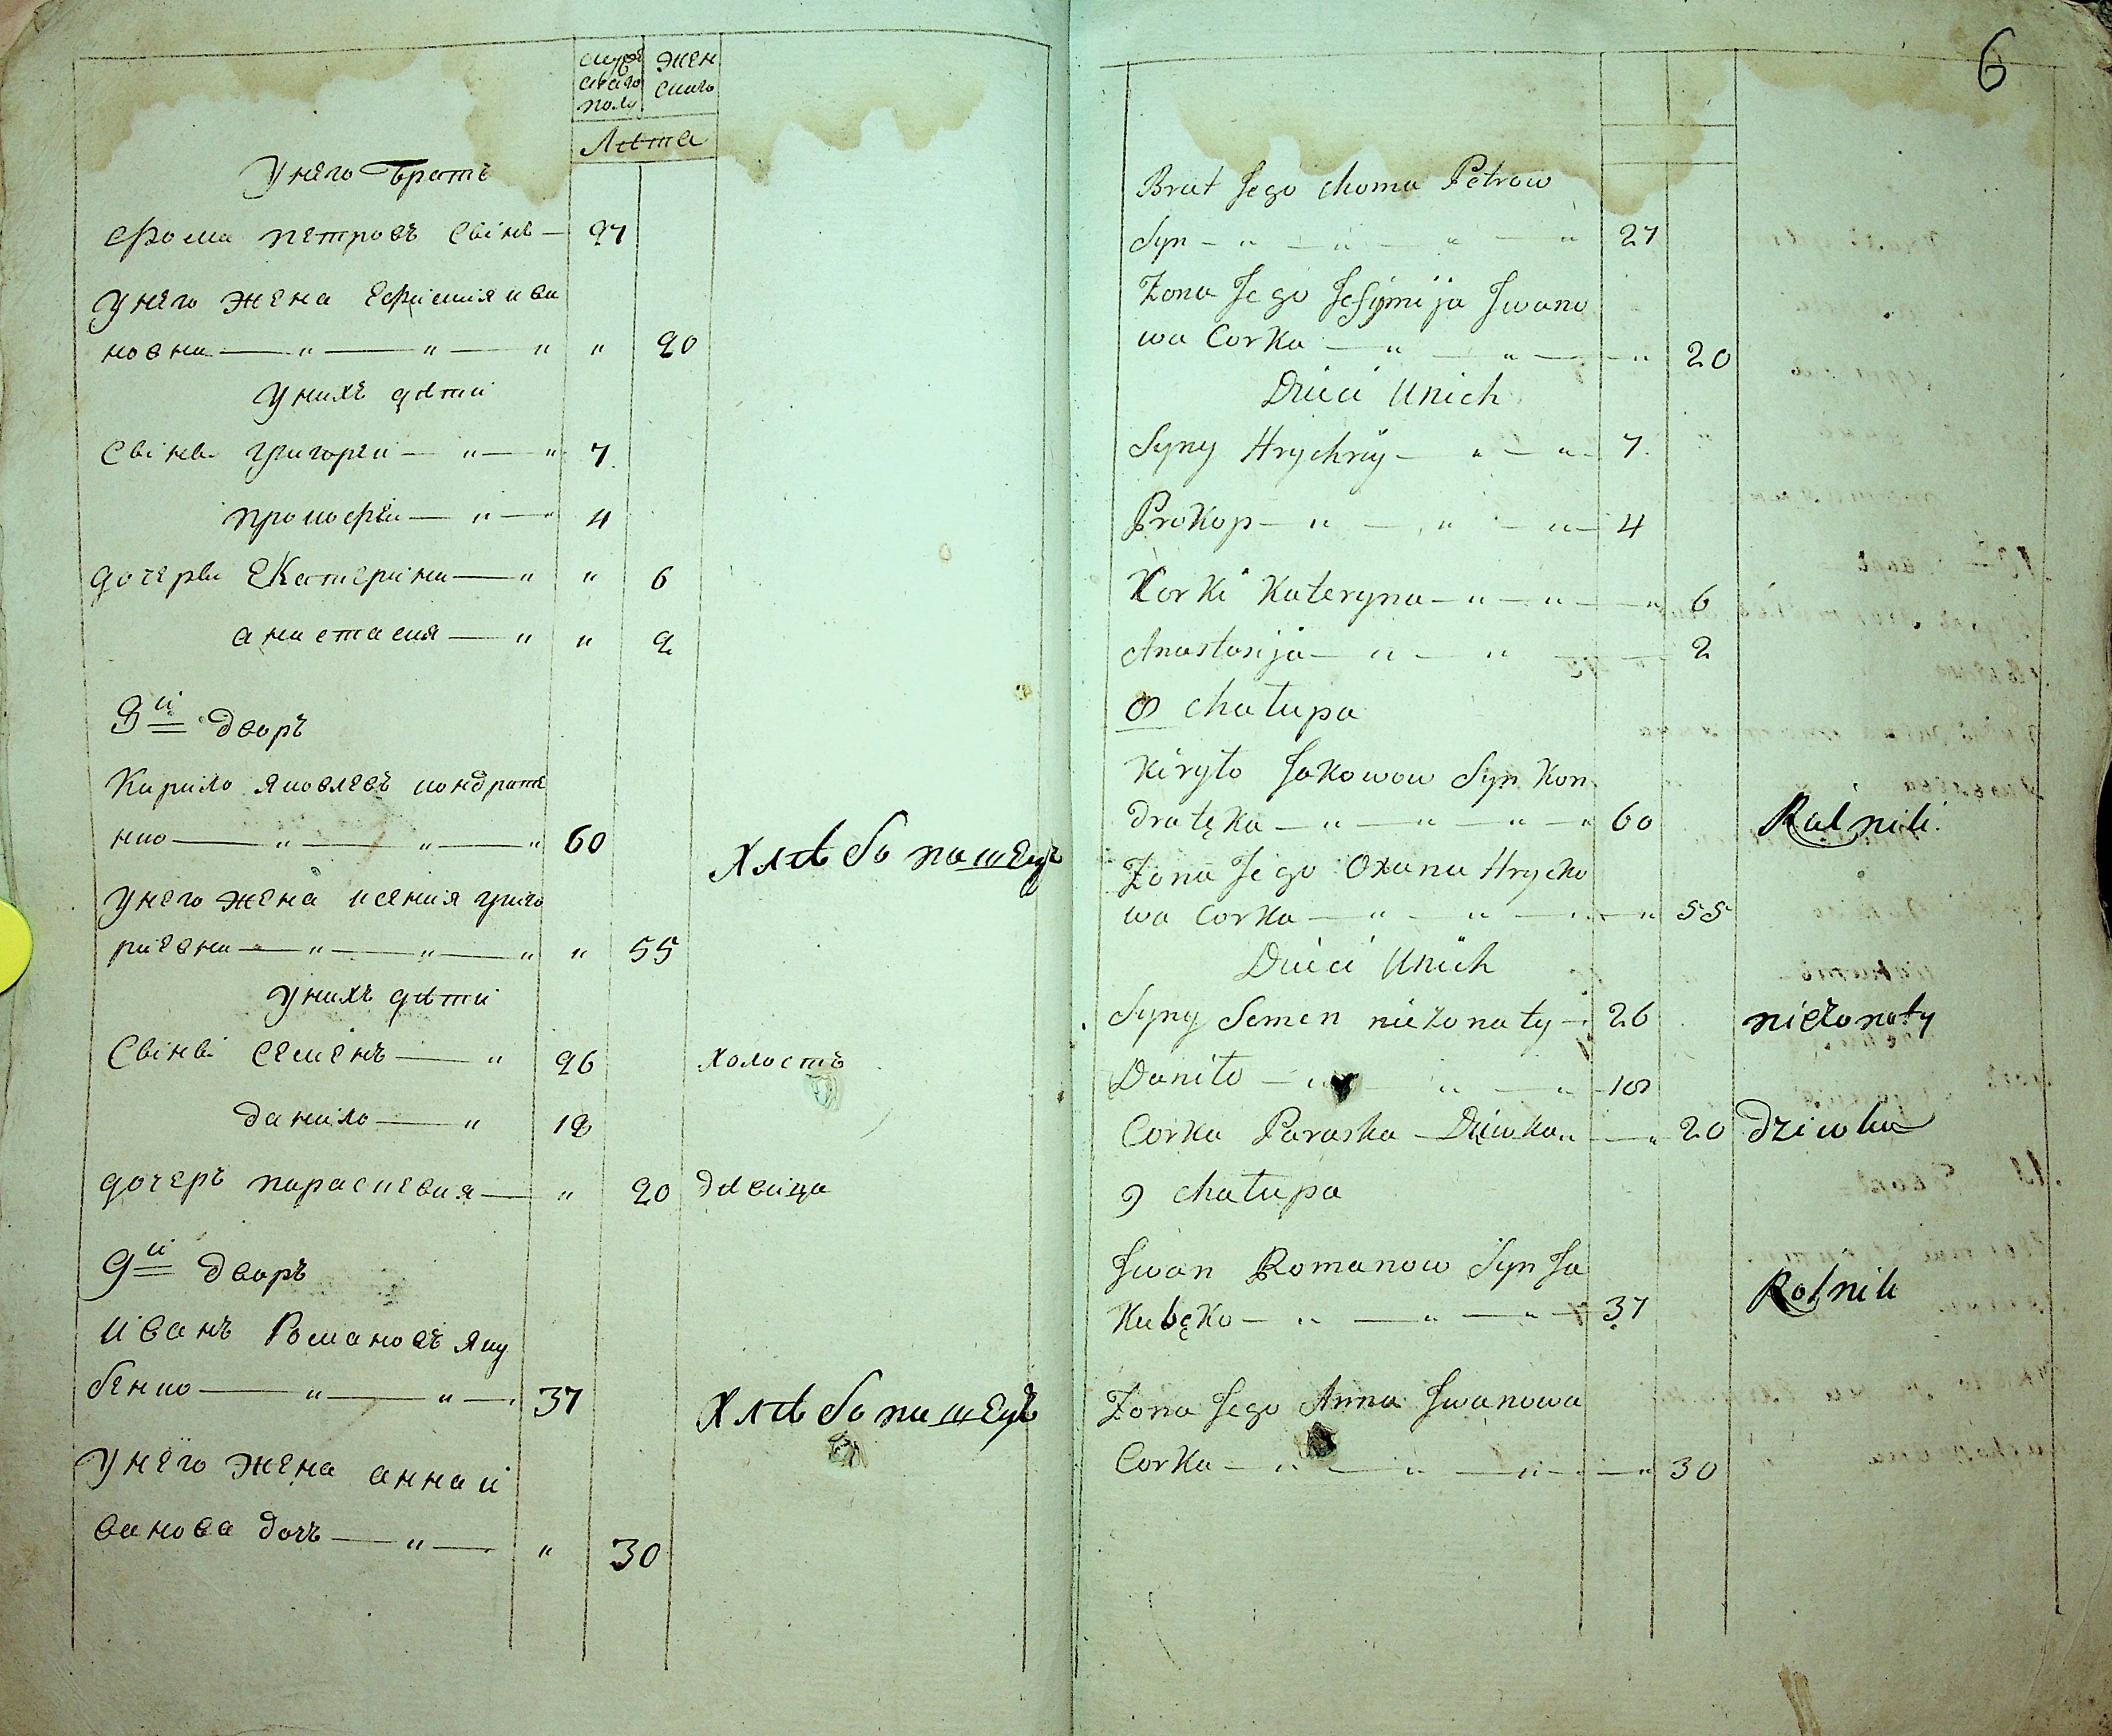 мужескаго полу
женскаго
Лѣта
У него братъ
Фома петровъ Свінъ — 27
У него жена Ефимія ива
новна — " — " — " " 20
У нихъ дѣти
Свінві григорей — " — " 7
прокофѣй — " — " 4
дочерви Екатерина — " " 6
анастасия — " " 2
8й дворъ
Кирило яковлевъ кондратѣ
нко — " — " — " 60
Хлѣбопашецъ
У него жена ксения григо
риевна — " — " — " " 55
У нихъ дѣти
Свінві Семенъ — " 26 холостъ
данило — " 18
дочеръ параскевия — " 20 дѣвица
9й дворъ
Иванъ Романовъ яку
бенко — " — " — 37
Хлѣбопашецъ
У него жена анна и
ванова дочъ — " — " 30
6
Brat Jego choma Petrow
Syn — " — " — " — " 27
Zona Jego Jefymija Jwano
wa Corka — " — " — " 20
Dzieci Unich
Syny Hrychory — " — " — 7
Prokop — " — " — " — 4
Korki Kateryna — " — " — " 6
Anastasija — " — " — 2
8 chałupa
Kiryło Jakowow Syn Kon
dratęka — " — " — " — " 60 Rolnik
Zona Jego Oxana Hrycko
wa Corka — " — " — " — " 55
Dzieci Unich
Syny Semen nieżonaty — 26 nieżonaty
Daniło — " — " — " — 18
Corka Paraska Dziwka " — " 20 dziwka
9 chałupa
Jwan Romanow Syn Ja
kubęko — " — " — " — 37 Rolnik
Zona Jego Anna Jwanowa
Corka — " — " — " — " 30